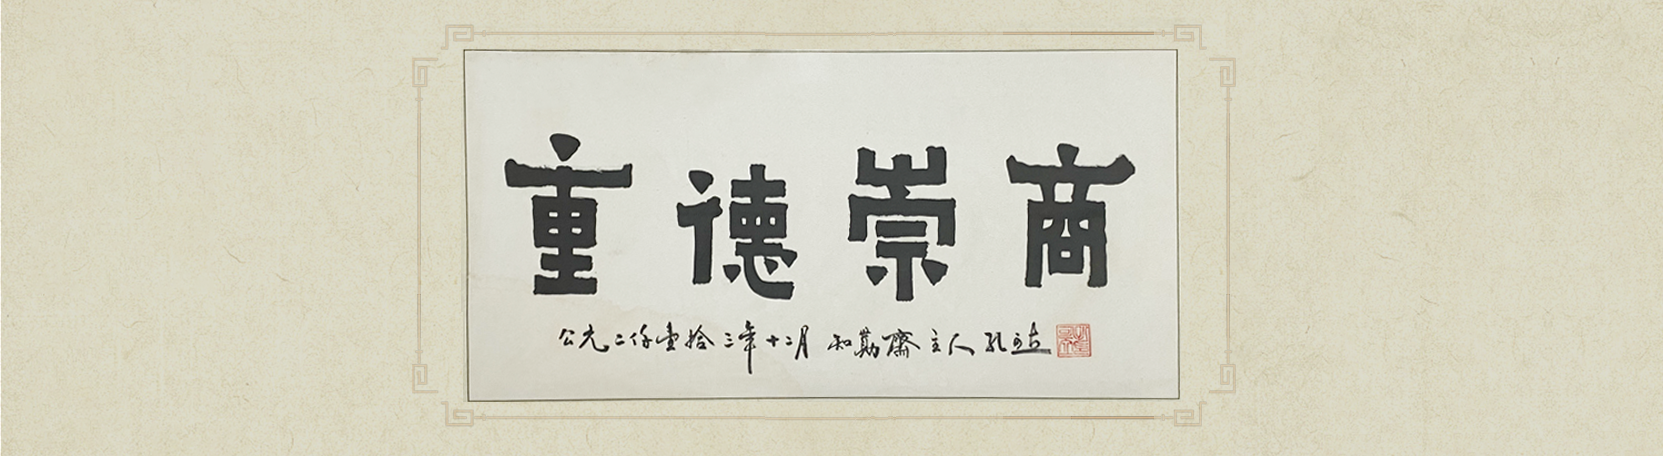 重德崇商
公元二仟壹拾三年十二月 知勤齋主人孔